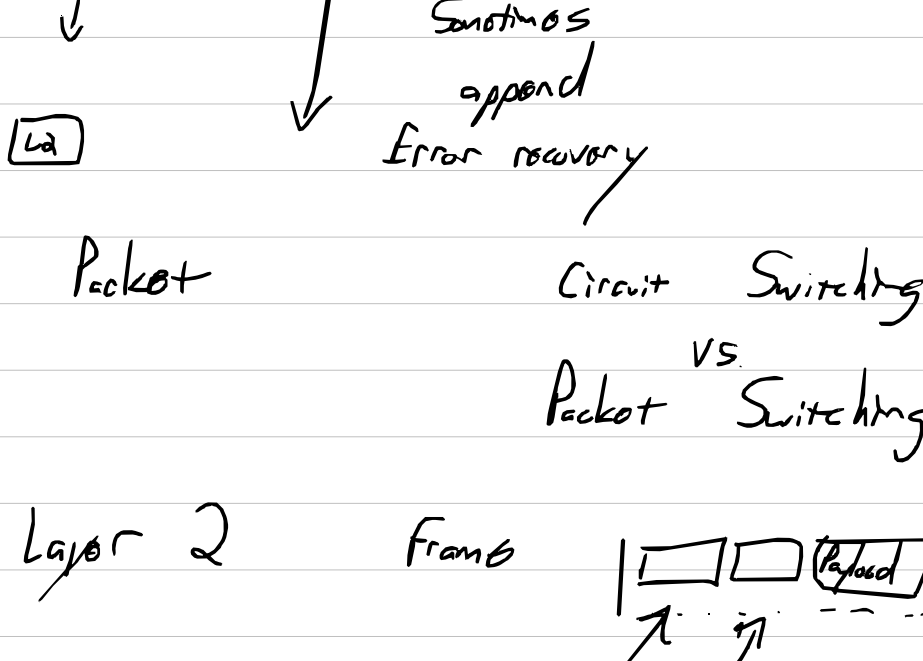 Sometimes
append
L2
Error recovery
Packet
Circuit Switching
vs.
Packet Switching
Layer 2 Frame
Payload